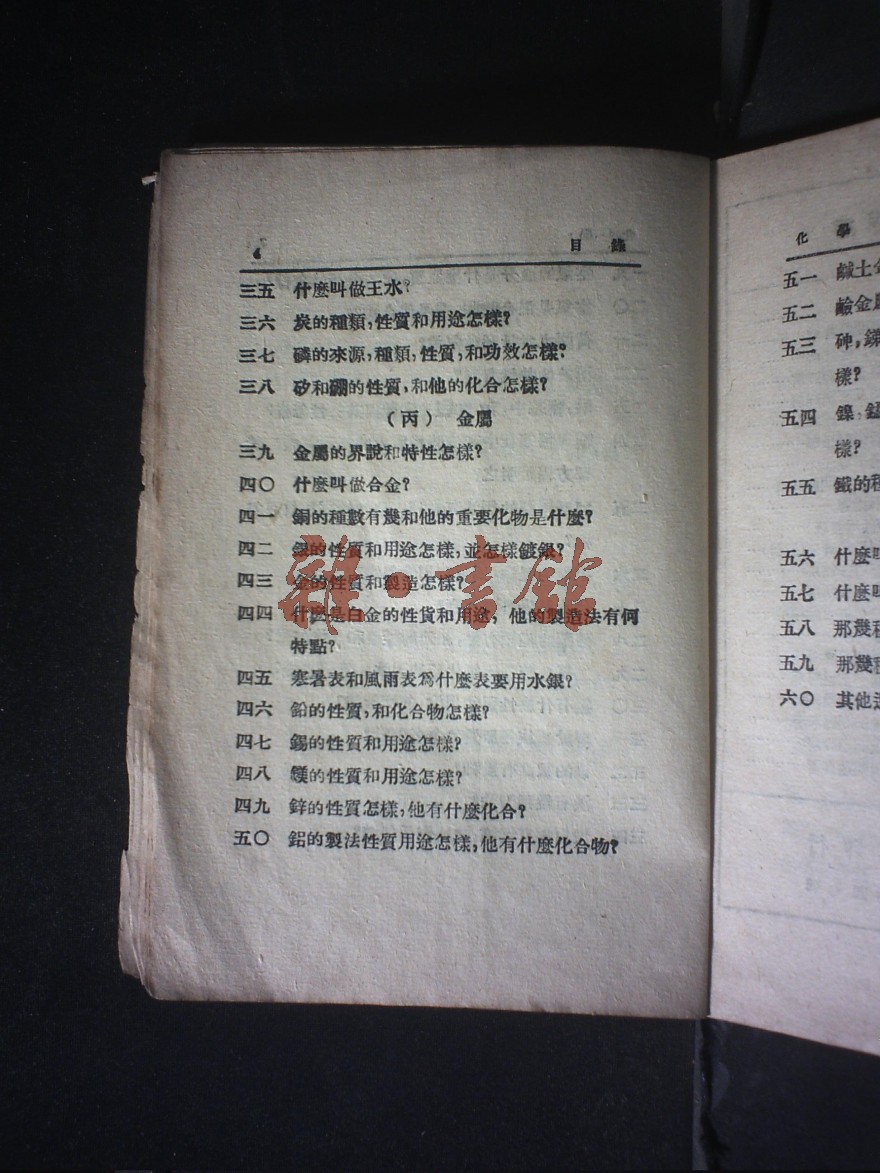 目錄
三五 什麼叫做王水?
三六 炭的種類,性質和用途怎樣?
三七 磷的來源,種類,性質,和功效怎樣?
三八 矽和硼的性質,和他的化合怎樣?
(丙) 金屬
三九 金屬的界說和特性怎樣?
四〇 什麼叫做合金?
四一 銅的種數有幾和他的重要化物是什麼?
四二 銀的性質和用途怎樣,並怎樣鍍銀?
四三 金的性質和製造怎樣?
四四 什麼是白金的性貨和用途,他的製造法有何
特點?
四五 寒暑表和風雨表爲什麼表要用水銀?
四六 鉛的性質,和化合物怎樣?
四七 錫的性質和用途怎樣?
四八 鎂的性質和用途怎樣?
四九 鋅的性質怎樣,他有什麼化合?
五〇 鋁的製法性質用途怎樣,他有什麼化合物?
雜·書館
化學
五一 鹹土金
五二 鹼金屬
五三 砷,
樣?
五四 鎳,
樣?
五五 鐵的種
五六 什麼叫
五七 什麼叫
五八 那幾種
五九 那幾種
六〇 其他